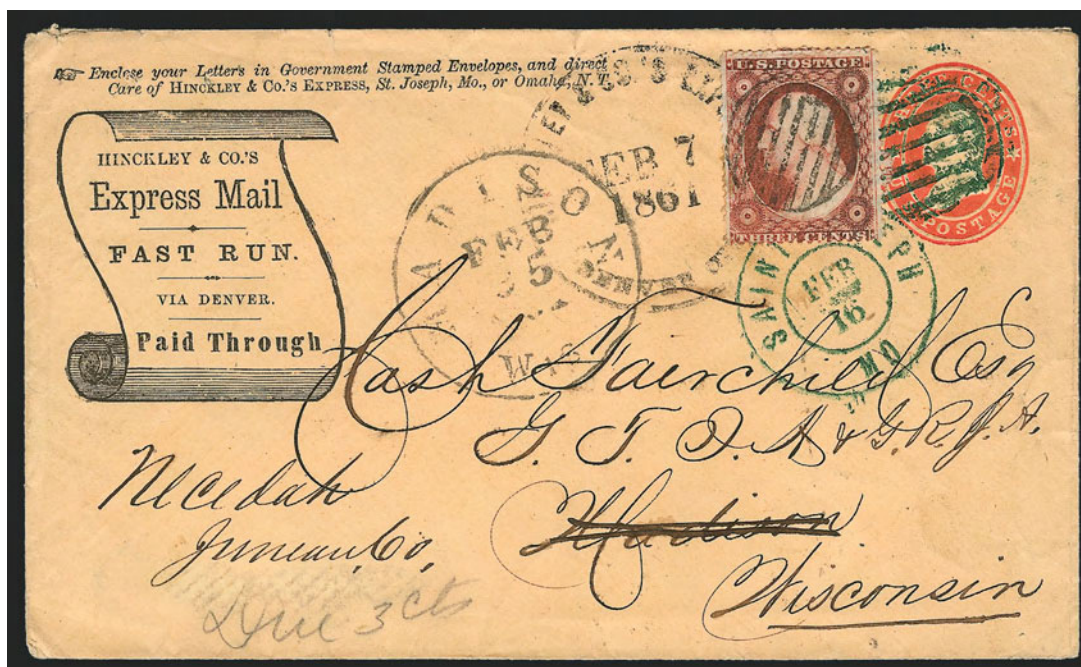 Enclose your Letters in Government Stamped Envelopes, and direct
Care of HINCKLEY & CO.'S EXPRESS, St. Joseph, Mo., or Omaha, N. T.
HINCKLEY & CO.'S
Express Mail
FAST RUN.
VIA DENVER.
Paid Through
MADISON
FEB
WIS
FEB 7
1861
U.S. POSTAGE
THREE CENTS
CENTS
POSTAGE
SAINT JOSEPH
FEB
16
MO.
Cash Fairchild Esq
G. T. D. A & G. R. J. A.
Madison
Wisconsin
Necedah
Juneau, Co,
Due 3 cts